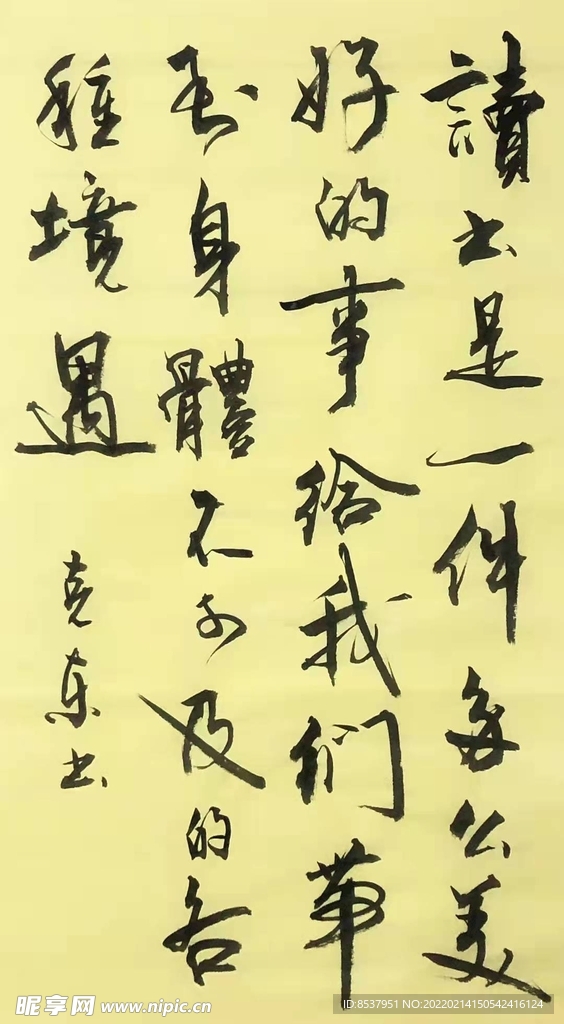 讀书是一件多么美
好的事给我们带
到身體不可及的各
種境遇
克东书
昵享网 www.nipic.cn
ID:8537951 NO:20220214150542416124